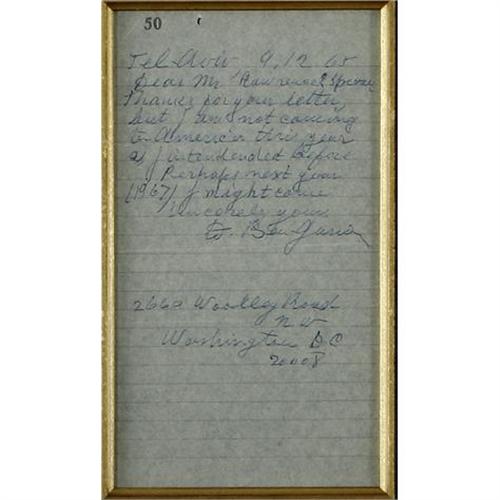 50
Tel-Aviv 9.12 65
Dear Mr Lawrence
Thanks for your letter,
but I am not coming
to America this year
as I intendended before
Perhaps next year
(1967) I might come
Sincerely yours
D. Ben-Gurion
Woodley Road
NW
Washington DC
20008